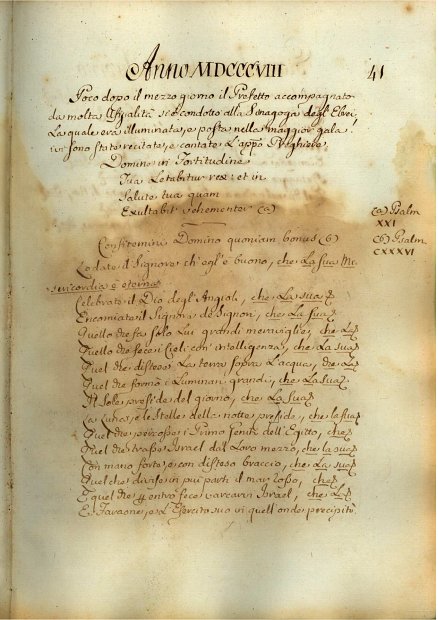 Anno MDCCCVIII
41
Poco dopo il mezzo giorno il Prefetto accompagnato
da molta Uffizialità si è condotto alla Sinagoga degl'Ebrei,
La quale era illuminata, e posta nella maggior gala
ivi sono state recitate, e cantate L'appo Preghiere.
Domine in Fortitudine
Tua Letabitur rex: et in
Salute tua quam
Exultabit vehementer (a)
(a) Psalm
XXI
Confitemini Domino quoniam bonus (b)
(b) Psalm
CXXXVI
Lodate il Signore ch'egl'è buono, che La Sua Mi=
sericordia è eterna
Celebrate il Dio degl'Angioli, che La sua
Encomiate il Signor de Signori, che La sua
Quello che fa solo Lui grandi meraviglie, che La
Quello che fece i Cieli con intelligenza, che La sua
Quel che distese La terra sopra L'acqua, che La
Quel che formò i Luminari grandi, che La sua
Il Sole presiede del giorno, che La Sua
La Luna, e le Stelle della notte preside, che la sua
Quel che percosse i Primo Geniti dell'Egitto, che
Quel che trasse Israel dal Loro mezzo, che la sua
Con mano forte, e con disteso braccio, che La sua
Quel che divise in più parti il mar rosso, che
E quel che entro fece varcarvi Israel, che La
E Faraone, e L'Esercito suo in quell'onde precipitò